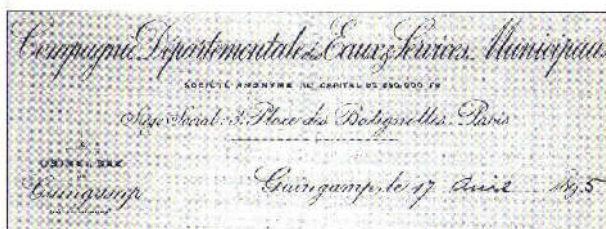 Compagnie Départementale des Eaux & Services Municipaux
SOCIÉTÉ ANONYME AU CAPITAL DE 250.000 FR
Siège Social: 3, Place des Batignolles. Paris
USINE A GAZ
DE
Guingamp
Guingamp, le 17 Avril 1895